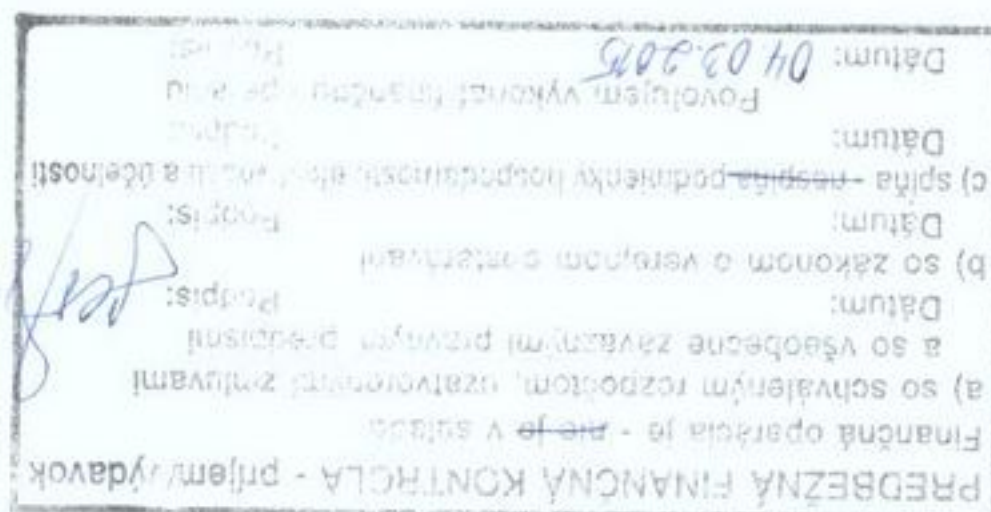 PREDBEŽNÁ FINANČNÁ KONTROLA - príjem/výdavok
Finančná oparácia je - nie je v súlade:
a) so schváleným rozpočtom, uzatvorenými zmluvami
a so všeobecne záväznými právnym predpismi
Dátum: Podpis:
b) so zákonom o verejnom obstarávaní
Dátum: Podpis:
c) spĺňa - nespĺňa podmienky hospodárnosti, efektívnosti a účelnosti
Dátum: Podpis:
Povoľujem vykonať finančnú operáciu
Dátum: 04.03.2015 Podpis: